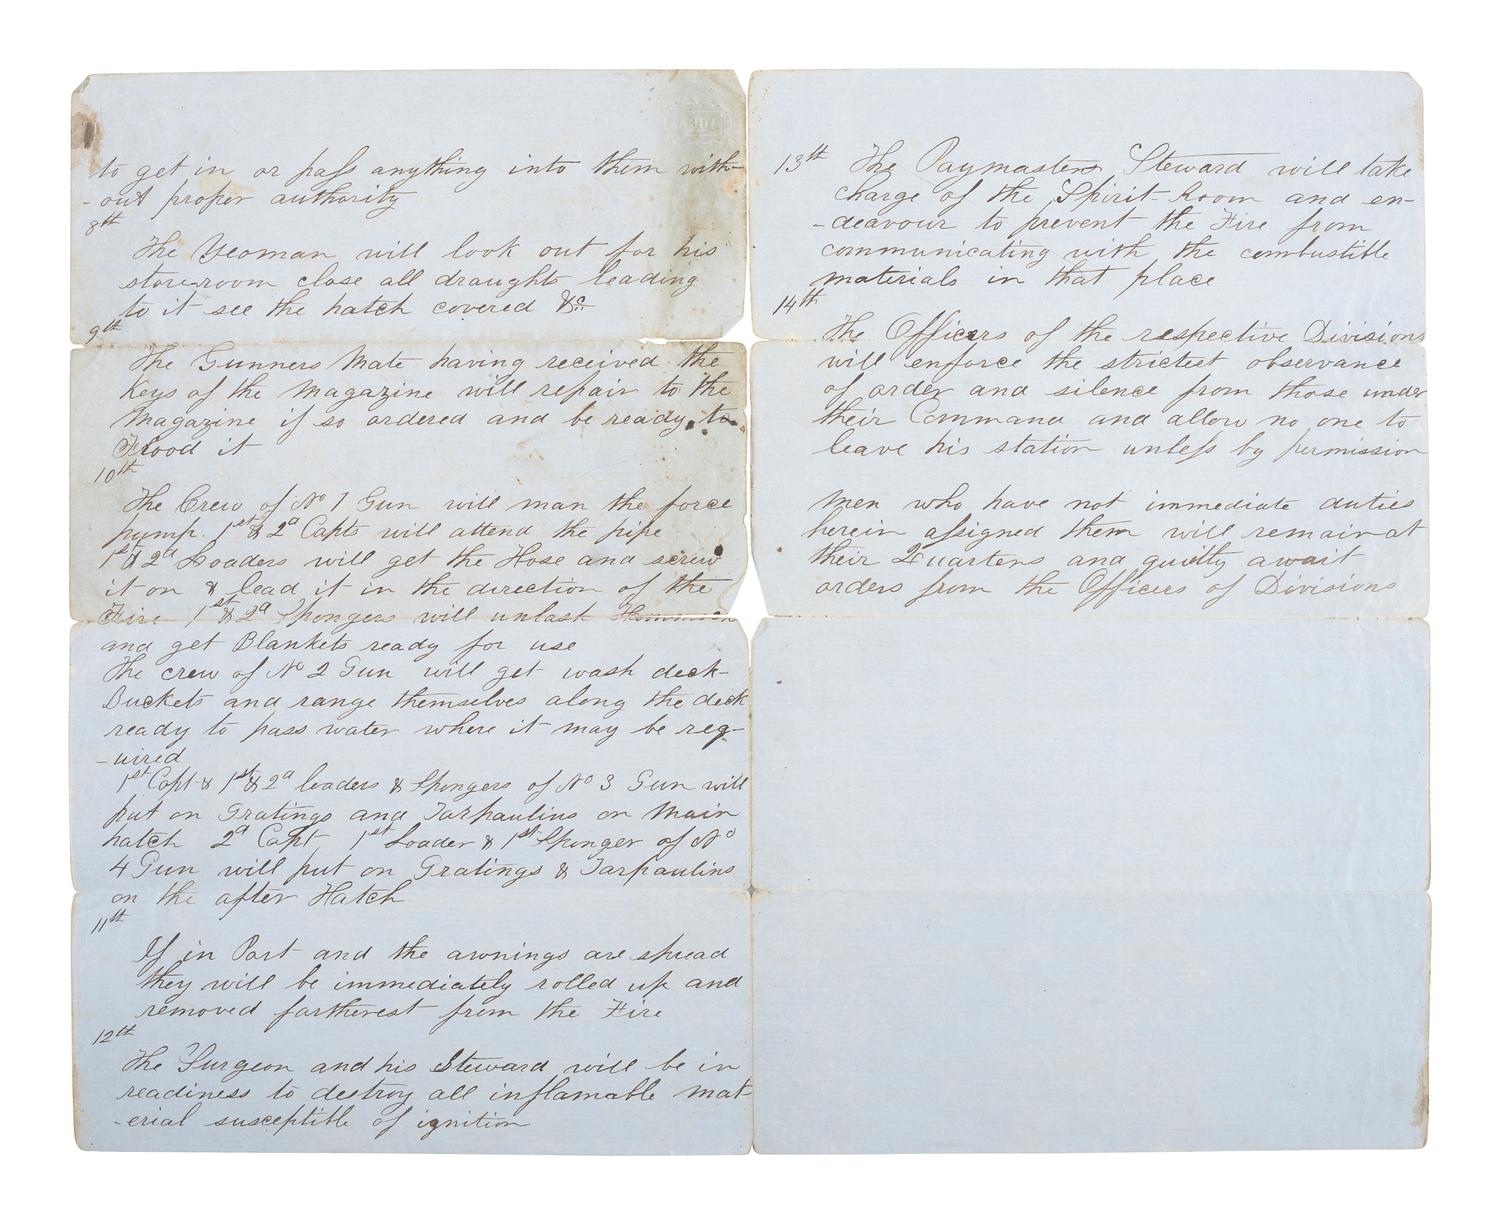 to get in or pass anything into them with-
-out proper authority
8th
The Yeoman will look out for his
store-room close all draughts leading
to it see the hatch covered &c
9th
The Gunners Mate having received the
Keys of the Magazine will repair to the
Magazine if so ordered and be ready to
Flood it
10th
The Crew of No 1 Gun will man the force
pump. 1st & 2d Capts will attend the pipe
1st & 2d Loaders will get the Hose and screw
it on & lead it in the direction of the
Fire 1st & 2d Spongers will unlash Hammock
and get Blankets ready for use
The crew of No 2 Gun will get wash deck-
Buckets and range themselves along the deck
ready to pass water where it may be req-
-uired
1st Capt & 1st & 2d loaders & Spongers of No 3 Gun will
put on Gratings and Tarpaulins on Main
hatch 2d Capt, 1st Loader & 1st Sponger of No
4 Gun will put on Gratings & Tarpaulins
on the after Hatch
11th
If in Port and the awnings are spread
they will be immediately rolled up and
removed fartherest from the Fire
12th
The Surgeon and his Steward will be in
readiness to destroy all inflamable mat-
-erial susceptible of ignition
13th The Paymasters Steward will take
charge of the Spirit-Room and en-
-deavour to prevent the Fire from
communicating with the combustible
materials in that place
14th
The Officers of the respective Divisions
will enforce the strictest observance
of order and silence from those under
their Command and allow no one to
leave his station unless by permission
Men who have not immediate duties
herein assigned them will remain at
their Quarters and quitly await
orders from the Officers of Divisions